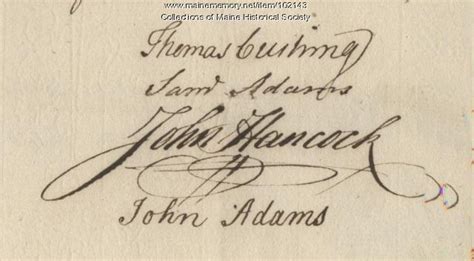 www.mainememory.net/item/102143
Collections of Maine Historical Society
Thomas Cushing
Sam Adams
John Hancock
John Adams